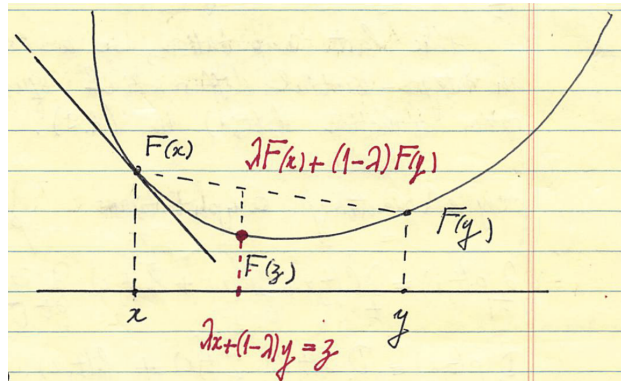 F(x)
λF(x)+(1-λ)F(y)
F(y)
F(z)
x
y
λx+(1-λ)y=z